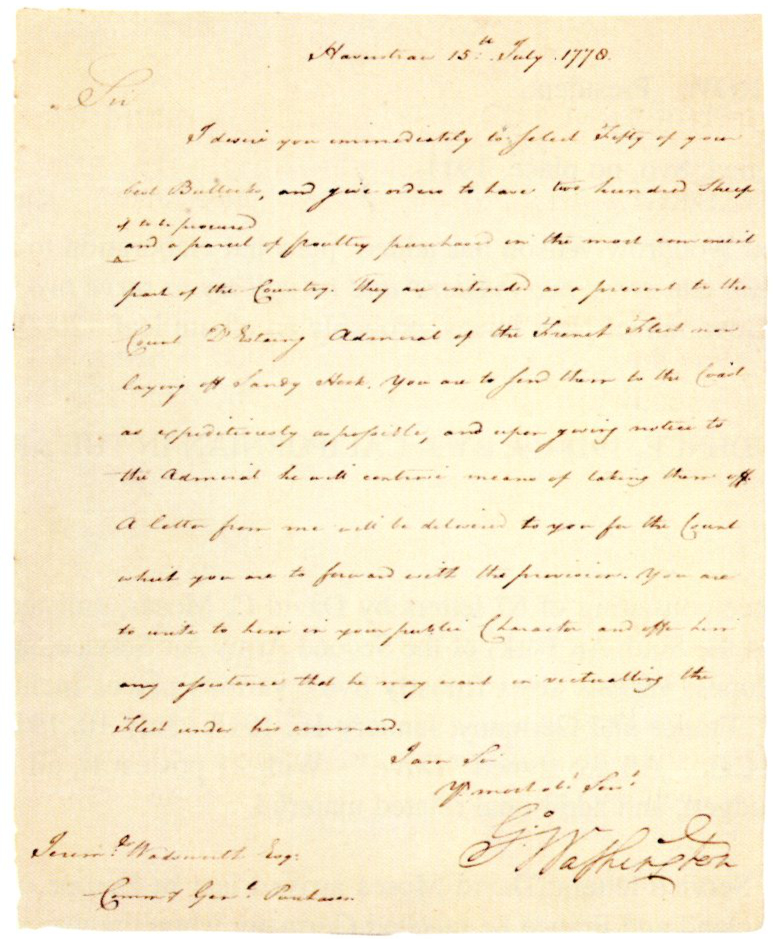 Haverstraw 15.th July 1778.
Sir
I desire you immediately to select Fifty of your
best Bullocks, and give orders to have two hundred Sheep
if to be procured
and a parcel of poultry purchased in the most convenient
part of the Country. They are intended as a present to the
Count D'Estaing Admiral of the French Fleet now
laying off Sandy Hook. You are to send them to the Coast
as expeditiously as possible, and upon giving notice to
the Admiral he will contrive means of taking them off.
A letter from me will be delivered to you for the Count
which you are to forward with the provision. You are
to write to him in your public Character and offer him
any assistance that he may want in victualling the
Fleet under his command.
I am Sir
Yr most obt Servt
Go Washington
Jeremh Wadsworth Esqr
Commy Genl Purchases